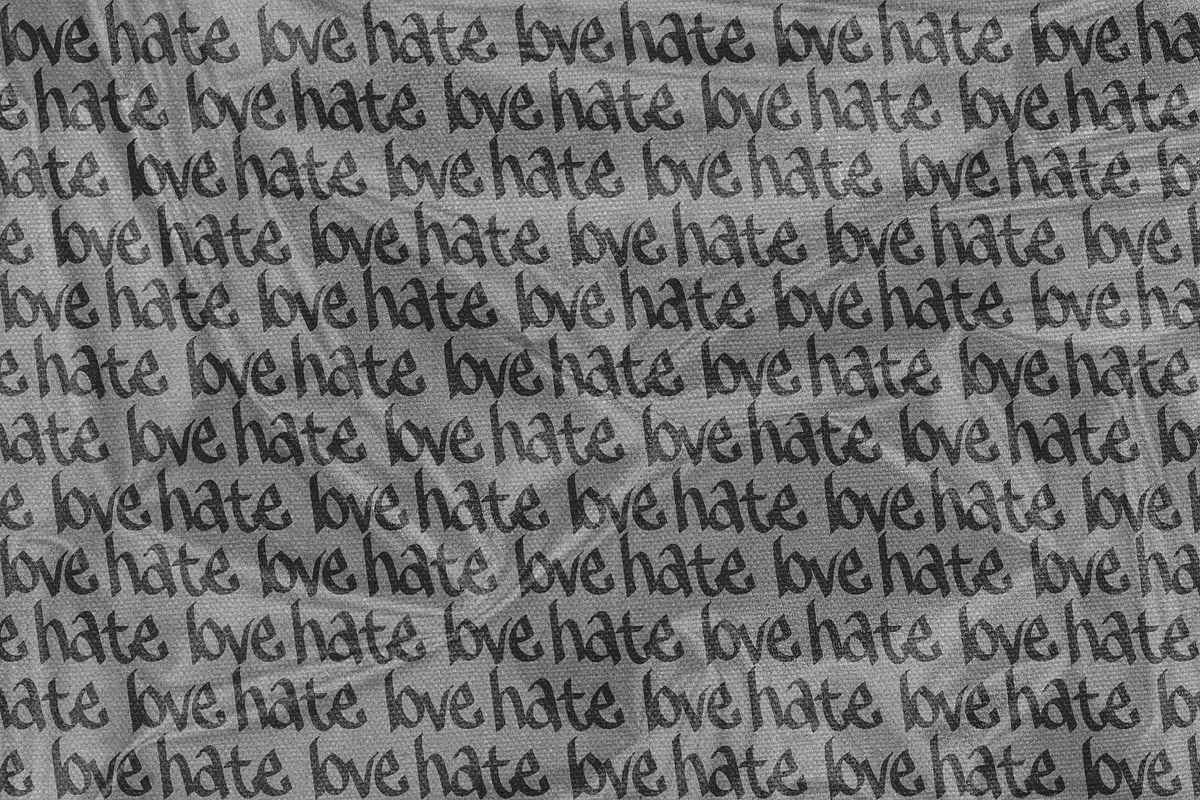 love hate love hate love hate love hate love ha
e hate love hate love hate love hate love hate
hate love hate love hate love hate love hate lo
e love hate love hate love hate love hate love h
love hate love hate love hate love hate love ha
e hate love hate love hate love hate love hate
hate love hate love hate love hate love hate lo
e love hate love hate love hate love hate love h
love hate love hate love hate love hate love ha
e hate love hate love hate love hate love hate
hate love hate love hate love hate love hate lo
e love hate love hate love hate love hate love h